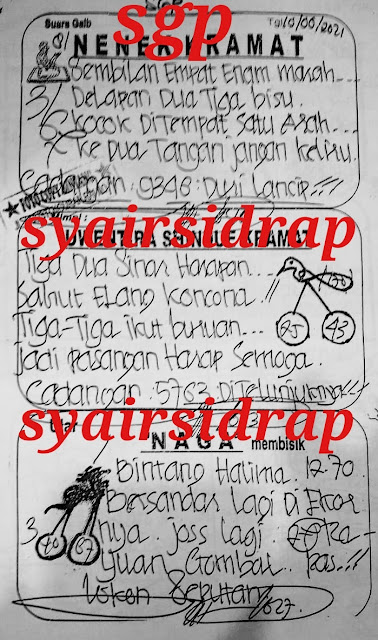 SGP
Suara Gaib
Tgl 10/06/2021
sgp
NENEK KRAMAT
Sembilan Empat Enam marah...
Delapan Dua Tiga bisu.
Kocok Di Tempat Satu Arah...
Ke Dua Tangan jangan keliru.
Cadangan : 9346 : Duri Lancip...!!!
syairsidrap
KRAMAT
Tiga Dua Sinar Harapan...
Salnut Elang Koncona !!
Tiga-Tiga ikut buruan...
Jadi Pasangan Harap Semoga.
95 43
Cadangan . 5763
syairsidrap
NAGA membisik
Bintang Halima. 12-70.
Bersandar Lagi Di Ekor
3
nya. joss lagi.
Gombal. Pas...!!!
40 67
627.